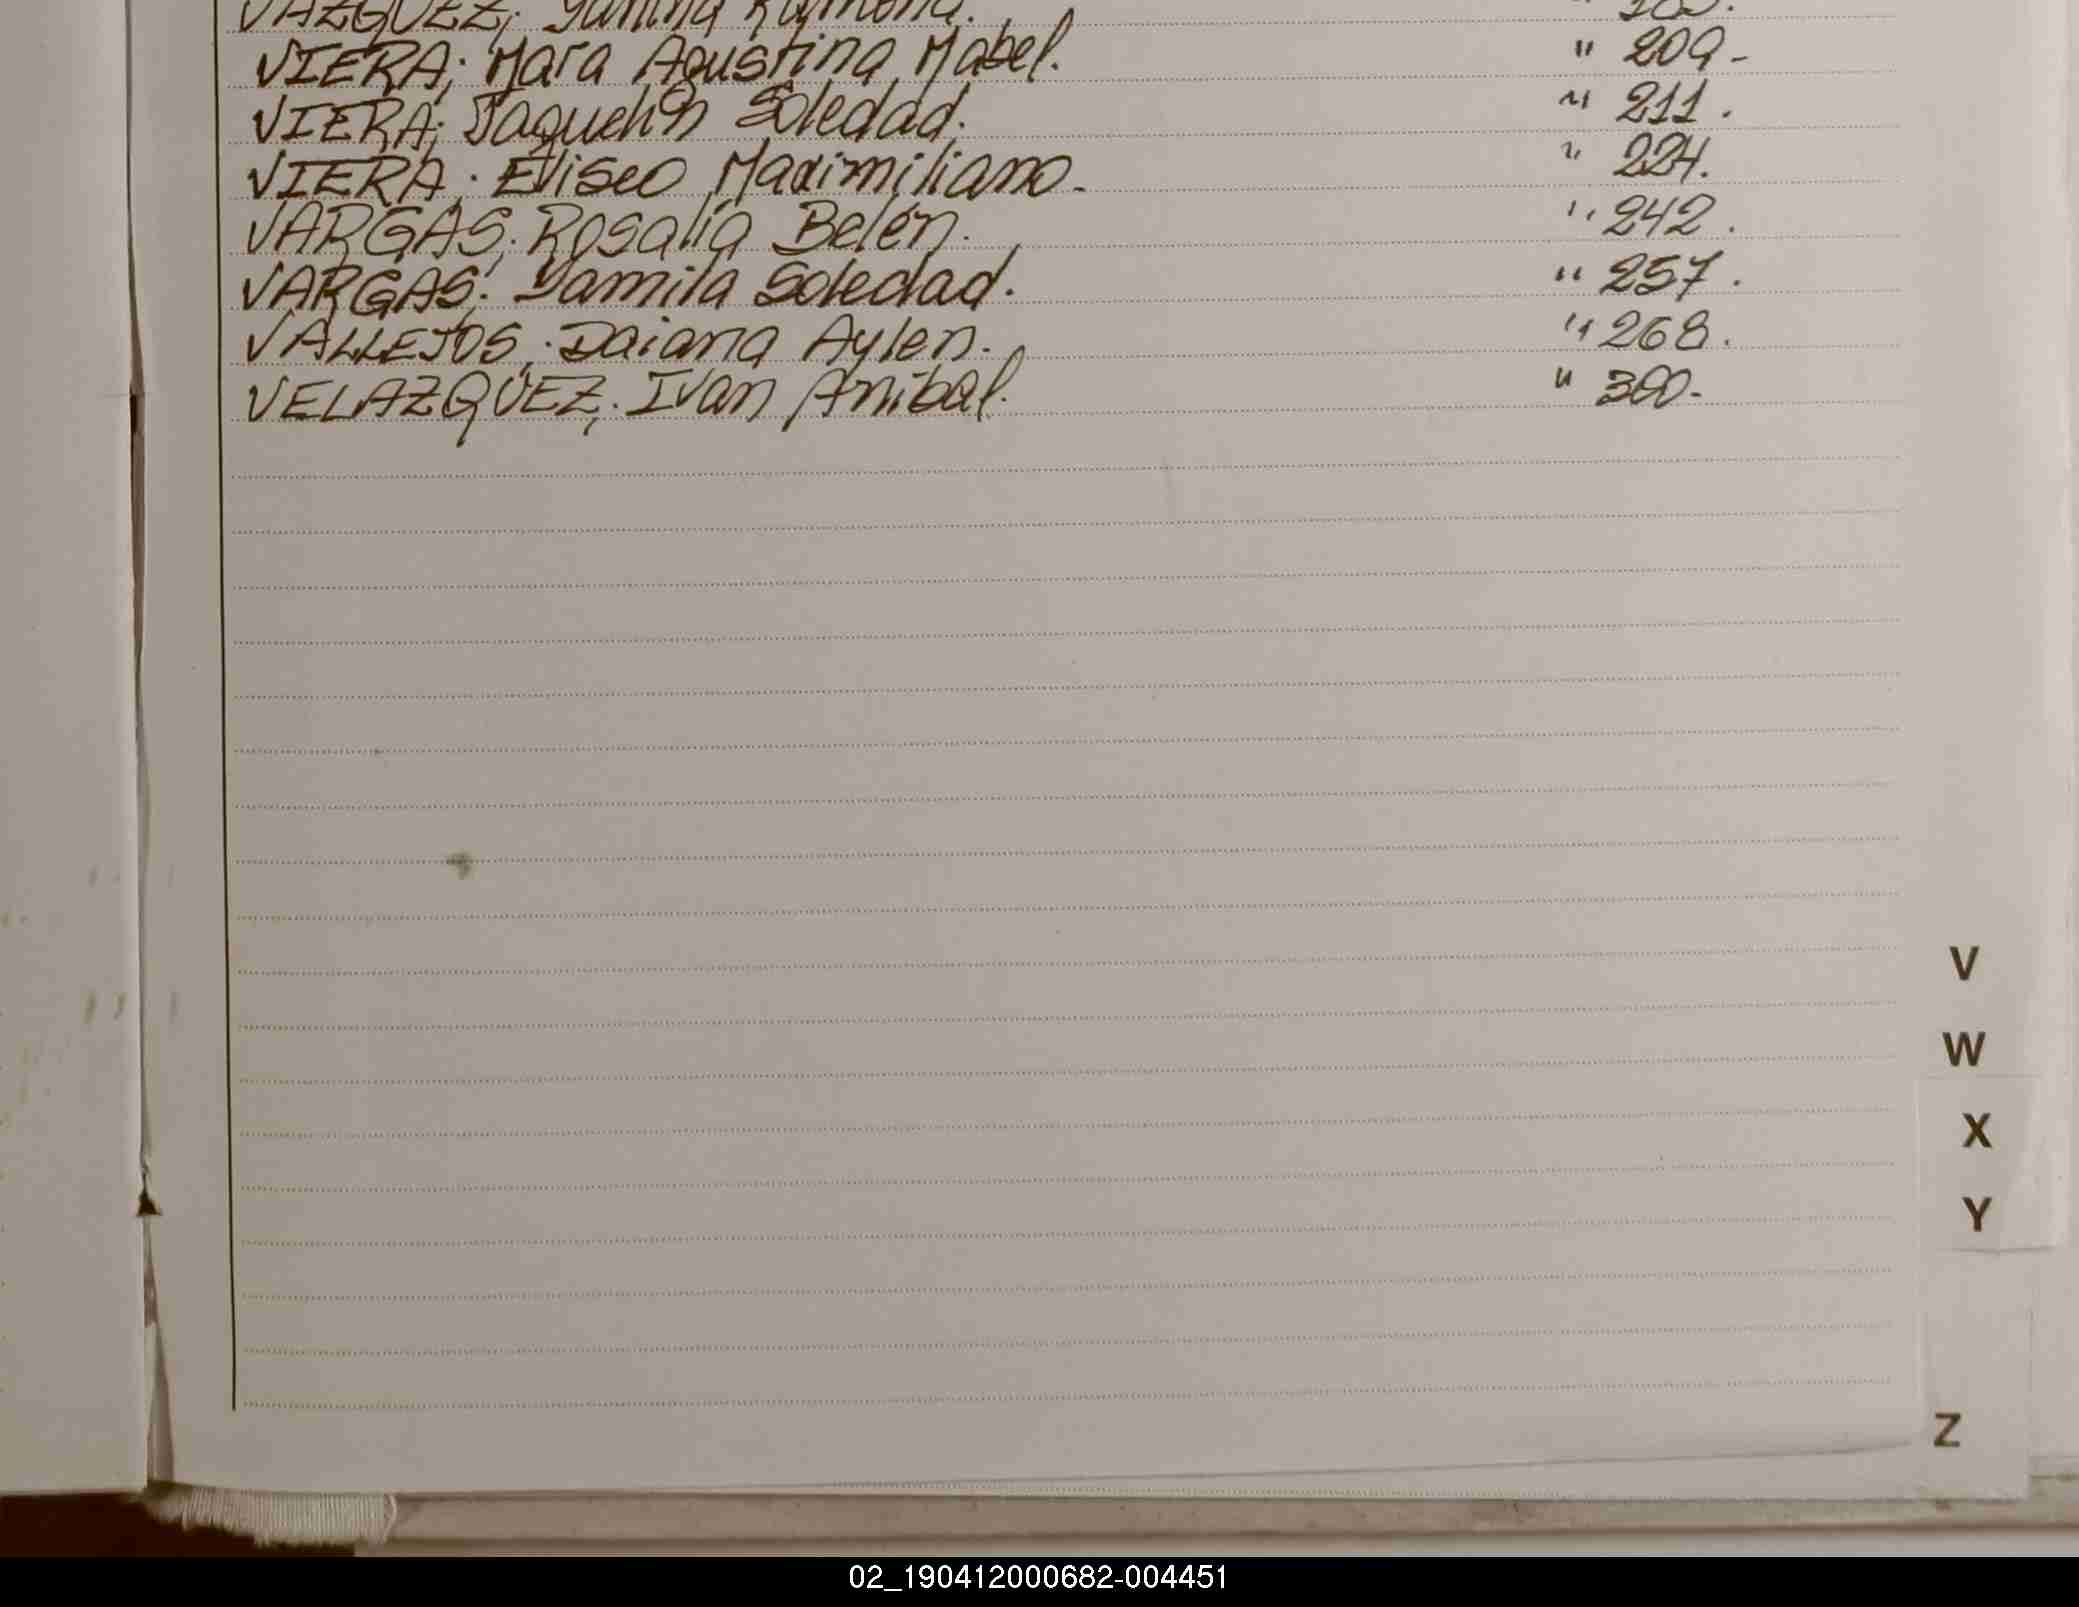 VAZQUEZ; Yanina Ramona.
VIERA; Mara Agustina Mabel. " 209-
VIERA; Jaquelin Soledad. " 211.
VIERA. Eliseo Maximiliano- " 224.
VARGAS; Rosalia Belén. " 242.
VARGAS; Yamila Soledad. " 257.
VALLEJOS; Daiana Aylen. " 268.
VELAZQUEZ; Ivan Anibal. " 300-
V
W
X
Y
Z
02_190412000682-004451